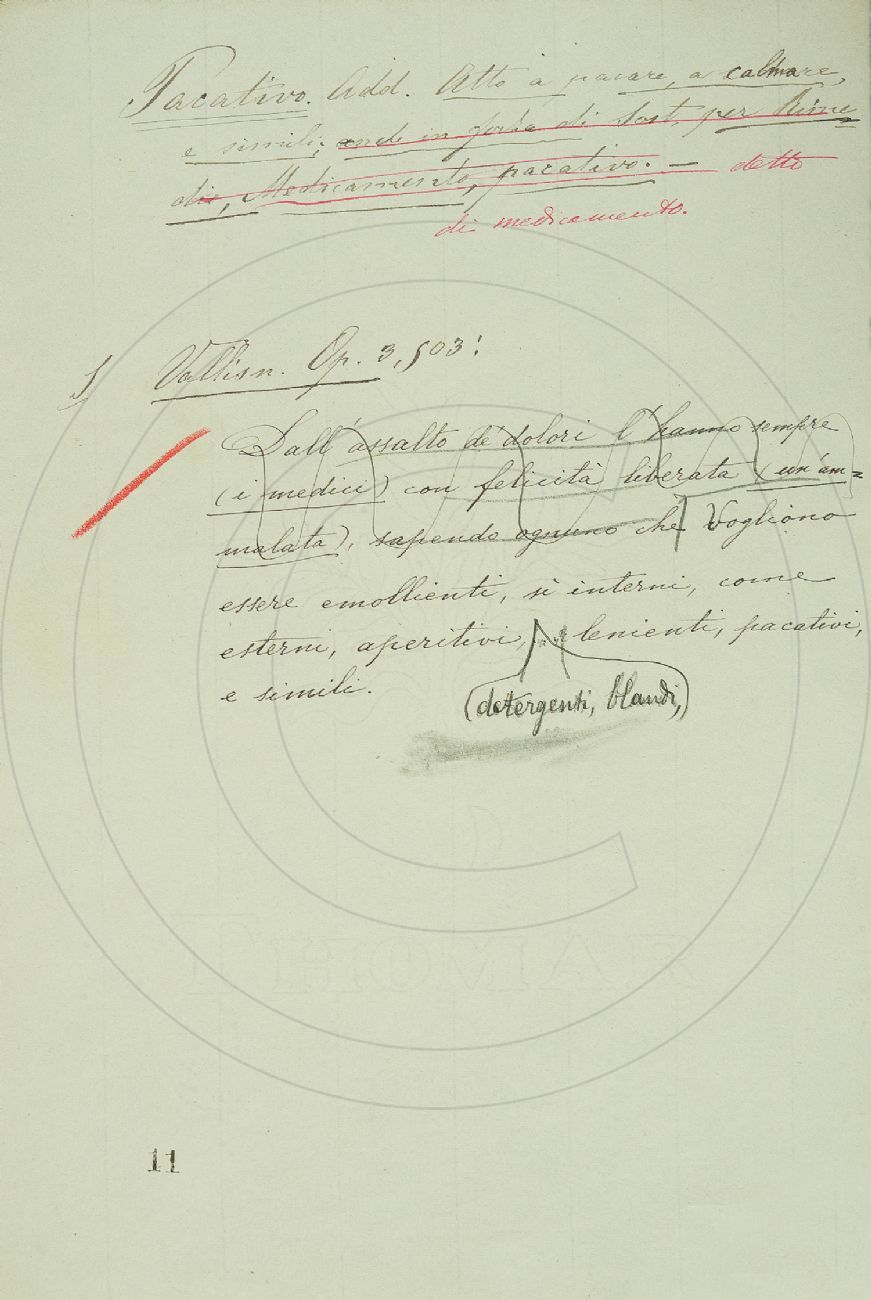 Pacativo. Add. Atto a pacare, a calmare,
e simili; anche in forza di Sost. per Rime
dio, Medicamento, pacativo. — detto
di medicamento.
Vallisn. Op. 3, 503:
Dall'assalto de' dolori l'hanno sempre
(i medici) con felicità liberata (un'am=
malata), sapendo ognuno che Vogliono
essere emollienti, sì interni, come
esterni, aperitivi, lenienti, pacativi,
e simili.
(detergenti, blandi,)
THOMAR
11